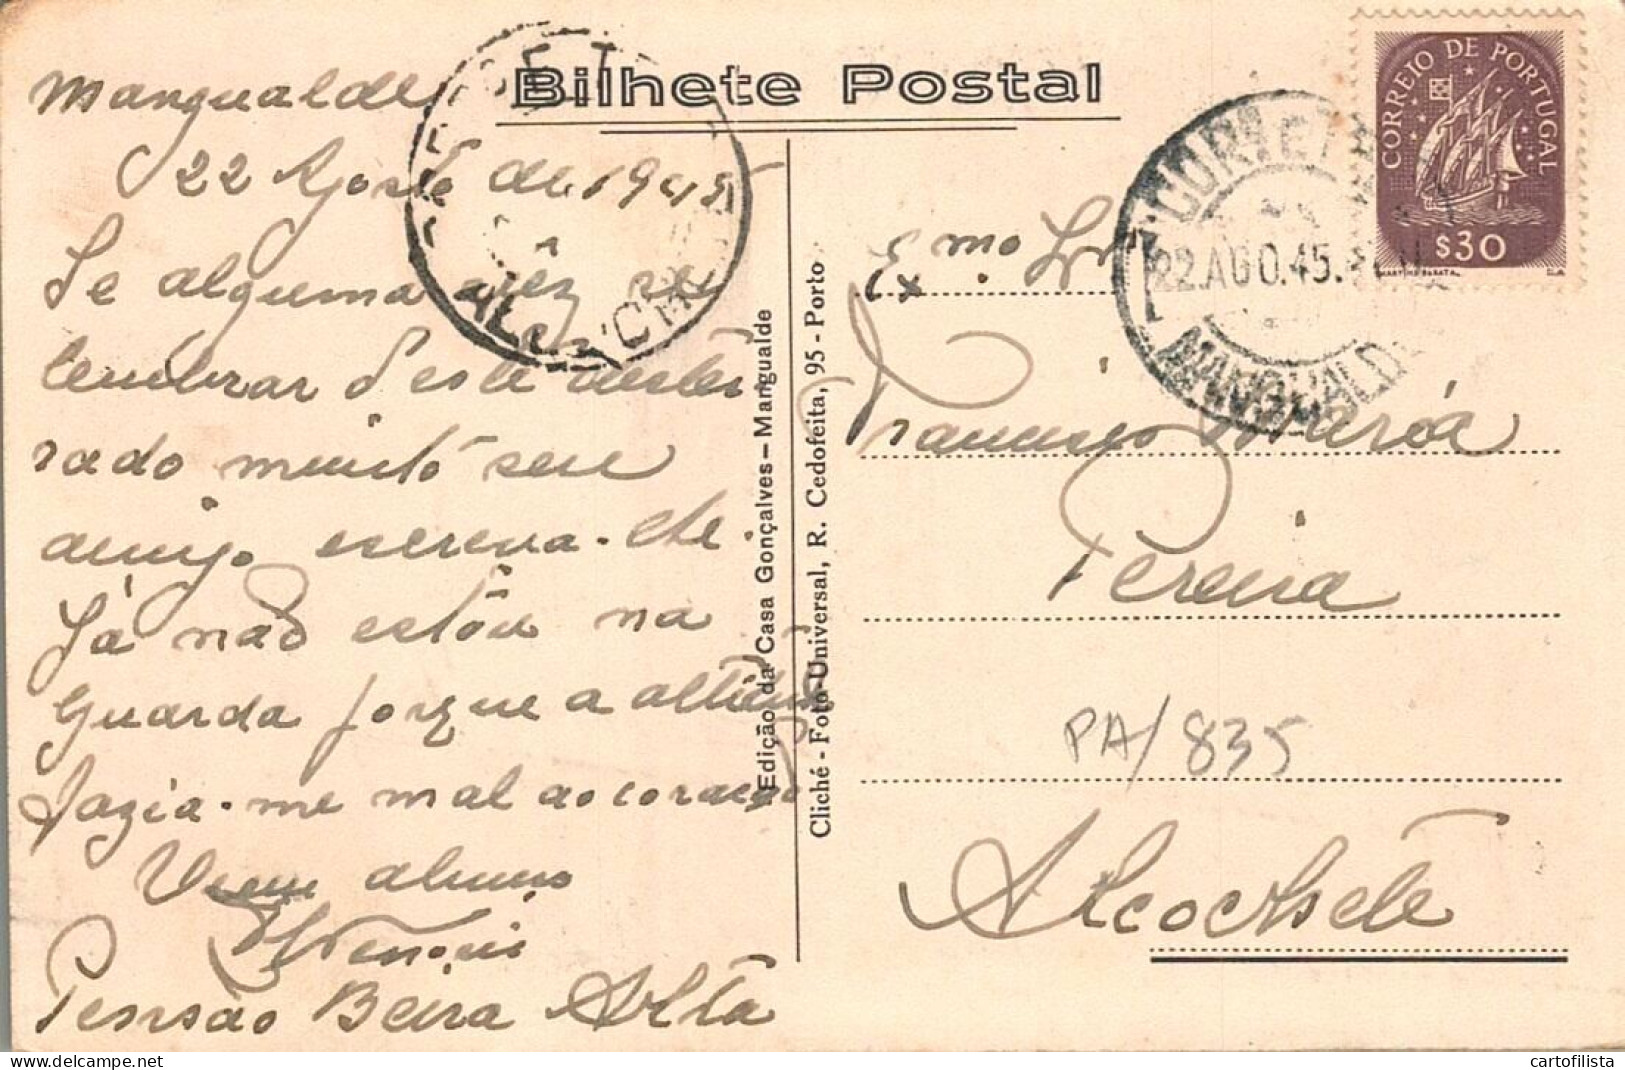 Bilhete Postal
Mangualde
22 Agosto de 1945
Se alguma vêz se
lembrar deste dester
rado muito seu
amigo escreva-lhe.
Já não estou na
Guarda porque a altitude
fazia-me mal ao coração
alumno
Pensão Beira Alta
Edição da Casa Gonçalves - Mangualde
Cliché - Foto-Universal, R. Cedofeita, 95 - Porto
CORREIO DE PORTUGAL
$30
MARTINS BARATA
22.AGO.45.
MANGUALDE
Ex.mo Sr.
Francisco Maria
Pereira
PA/835
Alcochete
cartofilista